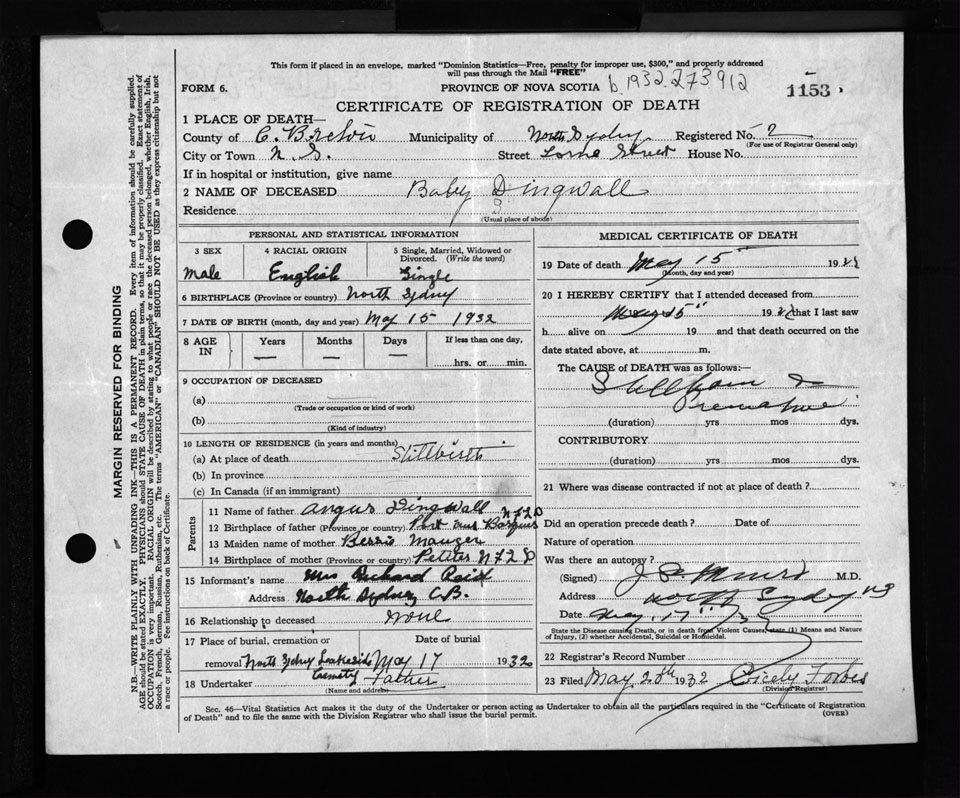 This form if placed in an envelope, marked "Dominion Statistics—Free, penalty for improper use, $300," and properly addressed
will pass through the Mail "FREE"
FORM 6. PROVINCE OF NOVA SCOTIA b.1932.273912 1153
CERTIFICATE OF REGISTRATION OF DEATH
1 PLACE OF DEATH—
County of C. Breton Municipality of North Sydney Registered No. 2
(For use of Registrar General only)
City or Town N. S. Street Lorne Street House No.
If in hospital or institution, give name
2 NAME OF DECEASED Baby Dingwall
Residence
(Usual place of abode)
PERSONAL AND STATISTICAL INFORMATION
3 SEX 4 RACIAL ORIGIN 5 Single, Married, Widowed or
Divorced. (Write the word)
Male English Single
6 BIRTHPLACE (Province or country) North Sydney
7 DATE OF BIRTH (month, day and year) May 15 1932
8 AGE IN Years Months Days If less than one day,
— — — hrs. or min.
9 OCCUPATION OF DECEASED
(a)
(Trade or occupation or kind of work)
(b)
(Kind of industry)
10 LENGTH OF RESIDENCE (in years and months)
(a) At place of death Stillbirth
(b) In province
(c) In Canada (if an immigrant)
Parents
11 Name of father Angus Dingwall
12 Birthplace of father (Province or country) Port aux Basques NFLD
13 Maiden name of mother Bessie Mauger
14 Birthplace of mother (Province or country) Petites NFLD
15 Informant's name Mrs Richard Reid
Address North Sydney C.B.
16 Relationship to deceased none
17 Place of burial, cremation or Date of burial
removal North Sydney Lakeside May 17 1932
Cemetry
18 Undertaker Father
(Name and address)
MEDICAL CERTIFICATE OF DEATH
19 Date of death May 15 19
(Month, day and year)
20 I HEREBY CERTIFY that I attended deceased from
May 15" 19 that I last saw
h alive on 19 and that death occurred on the
date stated above, at m.
The CAUSE of DEATH was as follows:—
Stillborn &
Premature
(duration) yrs mos dys.
CONTRIBUTORY
(duration) yrs mos dys.
21 Where was disease contracted if not at place of death?
Did an operation precede death? Date of
Nature of operation
Was there an autopsy?
(Signed) M.D.
Address North Sydney NS
Date May 17"
State the Disease causing Death, or in death from Violent Causes, state (1) Means and Nature
of Injury, (2) whether Accidental, Suicidal or Homicidal.
22 Registrar's Record Number
23 Filed May 28th 1932 Cicely Forbes
(Division Registrar)
Sec. 46—Vital Statistics Act makes it the duty of the Undertaker or person acting as Undertaker to obtain all the particulars required in the "Certificate of Registration
of Death" and to file the same with the Division Registrar who shall issue the burial permit. (OVER)
MARGIN RESERVED FOR BINDING
N.B.—WRITE PLAINLY WITH UNFADING INK—THIS IS A PERMANENT RECORD. Every item of information should be carefully supplied.
AGE should be stated EXACTLY. PHYSICIANS should STATE CAUSE OF DEATH in plain terms, so that it may be properly classified. Exact statement of
OCCUPATION is very important. RACIAL ORIGIN will be described by stating to what people or race the deceased person belonged, whether English, Irish,
Scotch, French, German, Russian, Ruthenian, etc. The terms "AMERICAN" or "CANADIAN" SHOULD NOT BE USED as they express citizenship but not
a race or people. Fee instructions on back of Certificate.